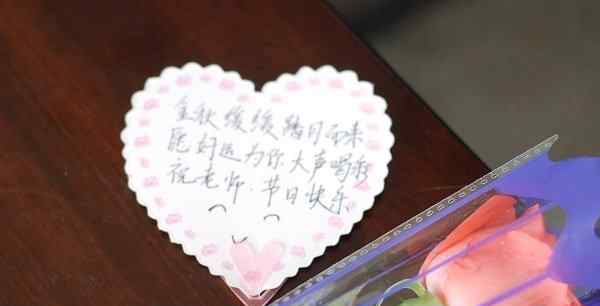 金秋缓缓踏月而来
愿好运为你大声喝彩
祝老师:节日快乐